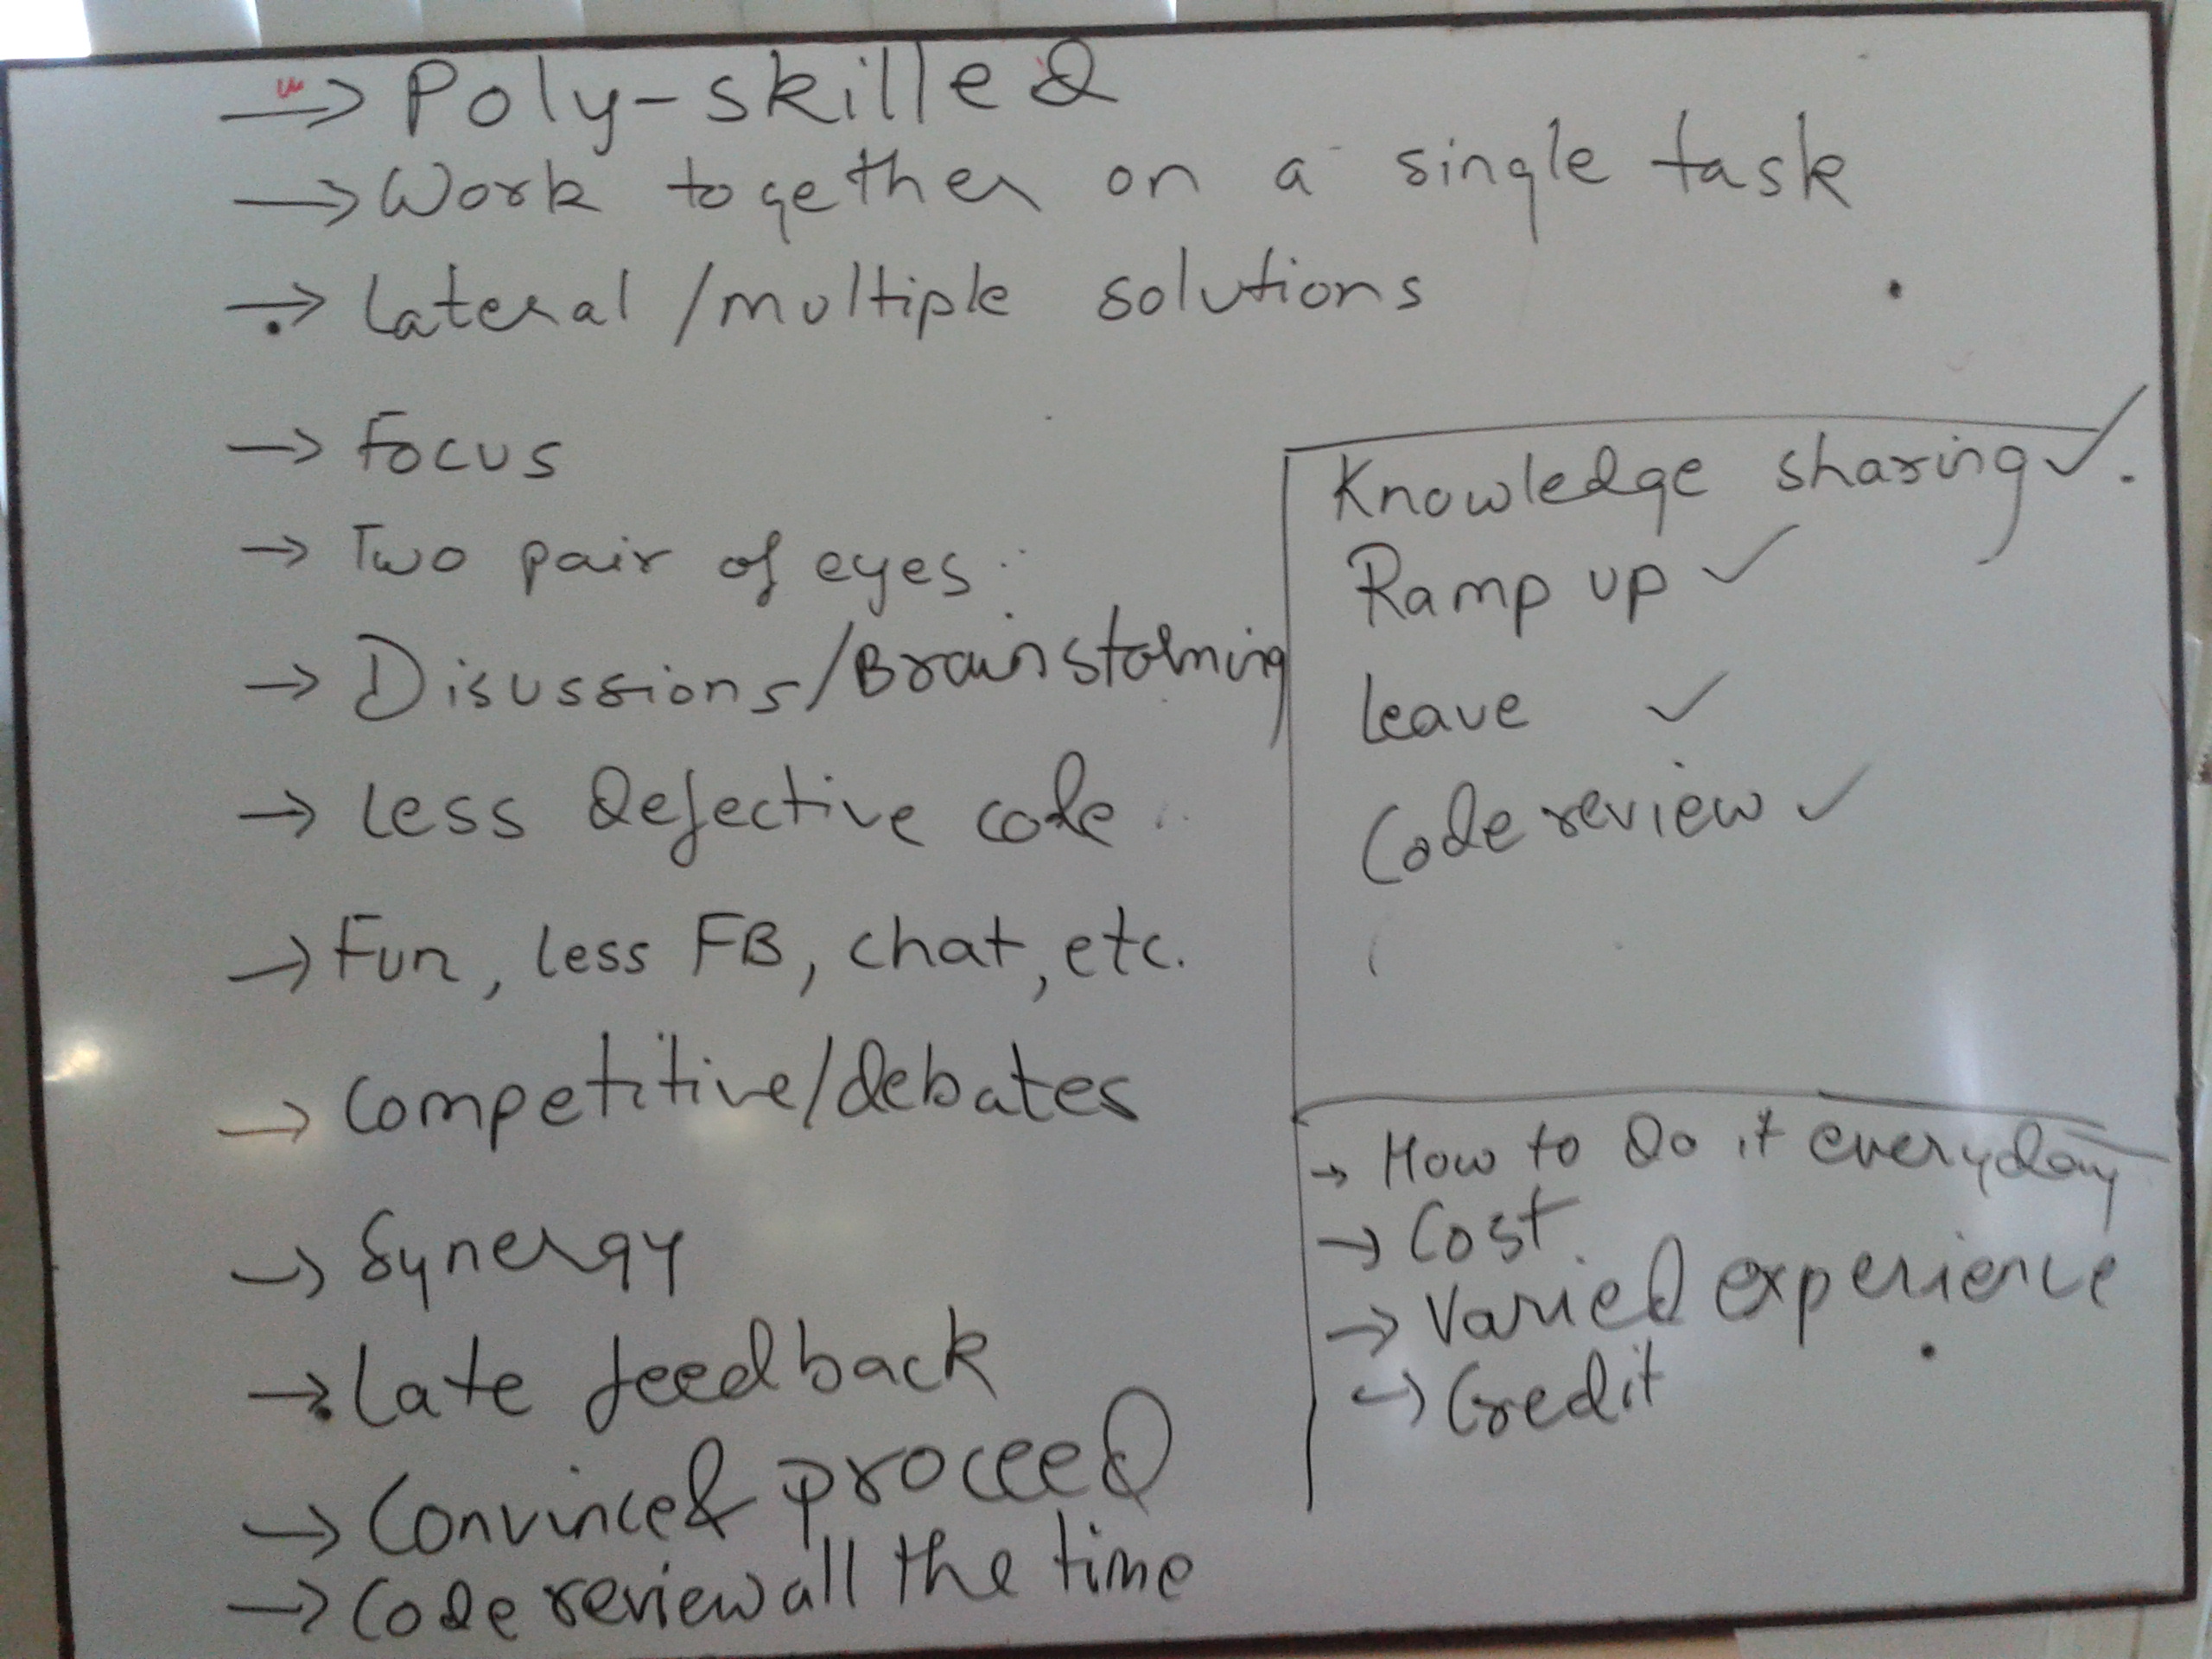 → Poly-skilled
→ Work together on a single task
→ Lateral / multiple solutions
→ Focus
→ Two pair of eyes
→ Disussions/Brainstorming
→ Less defective code
→ Fun, less FB, chat, etc.
→ Competitive/debates
→ Synergy
→ Late feedback
→ Convince & proceed
→ Code review all the time
Knowledge sharing ✓
Ramp up ✓
Leave ✓
Code review ✓
→ How to do it everyday
→ Cost
→ Varied experience
→ Credit